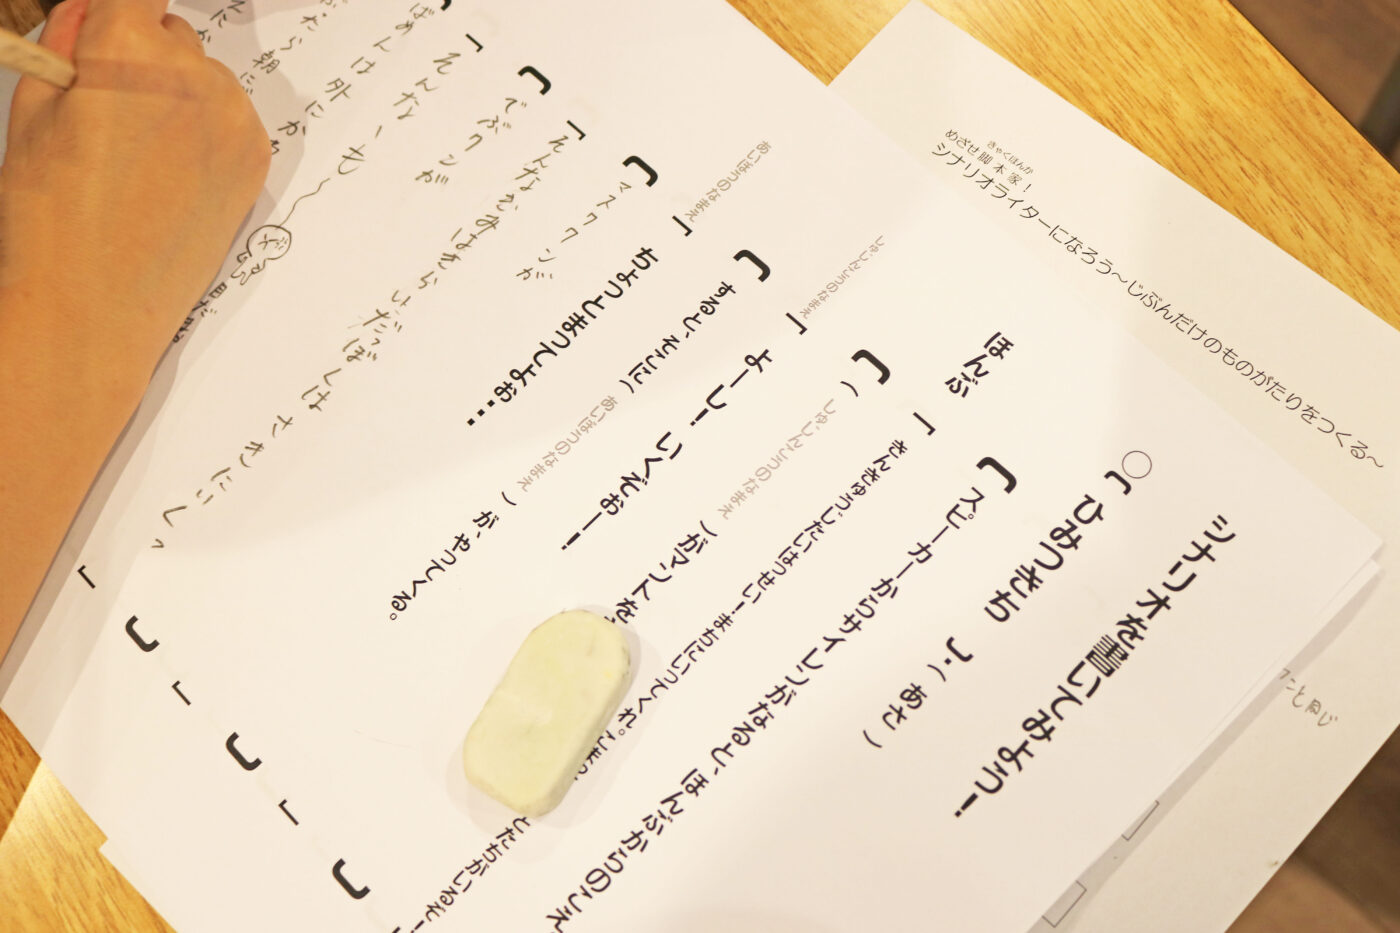 めざせ脚本家！
きゃくほんか
シナリオライターになろう〜じぶんだけのものがたりをつくる〜
こと同じ
シナリオを書いてみよう！
○〔 ひみつきち 〕・（ あさ ）
〔スピーカーからサイレンがなると、ほんぶからのこえ
ほんぶ「きんきゅうじたいはっせい！まちにいってくれ。こまっ
とたちがいるぞ！
〔（ しゅじんこうのなまえ ）がマントを
しゅじんこうのなまえ「よーし！いくぞぉー！！
〔するとそこに、（ あいぼうのなまえ ）が、やってくる。
あいぼうのなまえ「ちょっとまってよぉ…
〔マスクワンが
「そんなきみはきらいだっぼくは さきにいくっ
〔でぶワンが
「そんなーも〜
ばめんは外にかわ